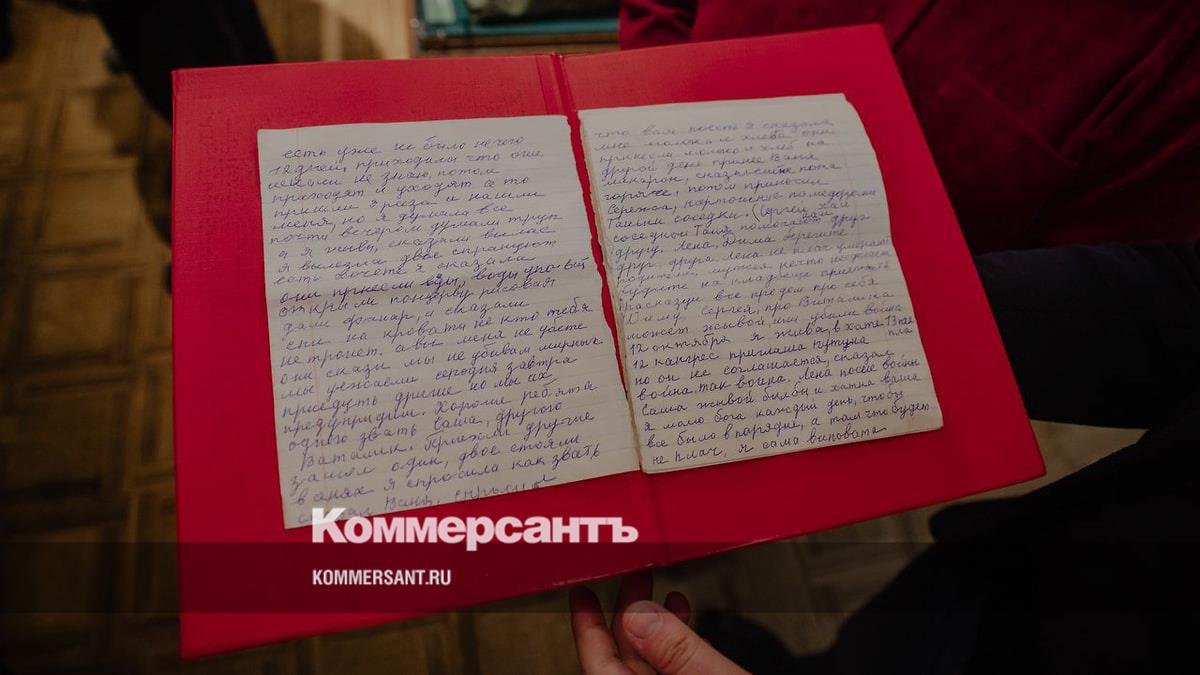 есть уже не было нечего
12 дней, приходили что они
искали не знаю, потом
приходят и уходят а то
пришли 3 раза и нашли
меня, но я думала все
почти вечером думали труп
а я жива, сказали вылас
я вылезла двое спрашуют
есть хочете я сказала
они принесли еды, воды
открыли консерву рисовая
дали фонар, и сказали
спи на кровати не кто тебя
не тронет. а вы меня не убете
они сказы мы не убивам мирных
мы уежаем сегодня завтра
приедуть другие но мы их
предупридим. Хорошие ребята
одного звать Саша, другого
Виталик. Приехали другие
зашел один, двое стояли
в сенях я спросила как звать
Ваня, спросил
что вам поесть я сказала
мне молока и хлеба они
принесли молоко и хлеб на
другой день принес Ваня
макарон, сказал ешь пока
горяче, потом приносил
Сережа, картошние помедорами
Таньки соседки. (Сергей
соседкой Таня помогают друг
другу. Лена, Дима берегите
друг друга, Лена не плач умирают
родители, мужья некто не
будите на кладбище приежать
расказуй все предом про себя
Диму Сергея, про Виталика
может жывой, или убили война
12 октября я жива, в хате
12 кангрес приглаша Путуна
но он не соглашается, сказал
война так война. Лена после войны
Саша жывой былбы и хатна ваша
я молю бога каждый день, чтобы
все было в порядке, а там что будет
не плач, я сама виновата
Коммерсантъ
KOMMERSANT.RU